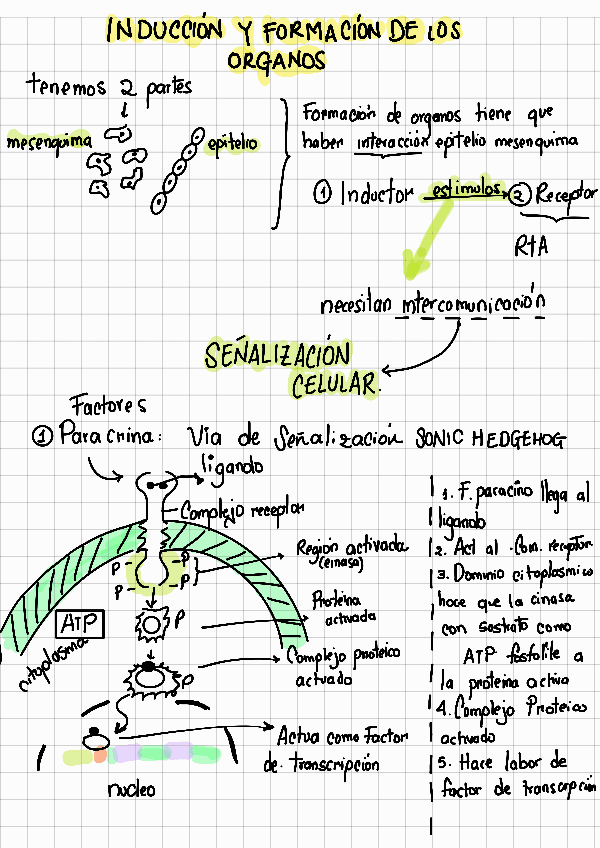 INDUCCIÓN Y FORMACIÓN DE LOS
ORGANOS
tenemos 2 partes
mesenquima
epitelio
Formación de organos tiene que
haber interacción epitelio mesenquima
① Inductor estimulos ② Receptor
RtA
necesitan intercomunicación
SEÑALIZACIÓN
CELULAR.
Factores
① Paracrina: Vía de Señalización SONIC HEDGEHOG
ligando
Complejo receptor
Región activada
(cinasa)
P P
P P
Proteina
activada
P
ATP
citoplasma
Complejo proteico
activado
P
Actua como Factor
de transcripción
nucleo
1. F. paracino llega al
ligando
2. Act al Com. receptor
3. Dominio citoplasmico
hace que la cinasa
con sostrato como
ATP fosfolile a
la proteina activa
4. Complejo Proteico
activado
5. Hace labor de
factor de transcrpción